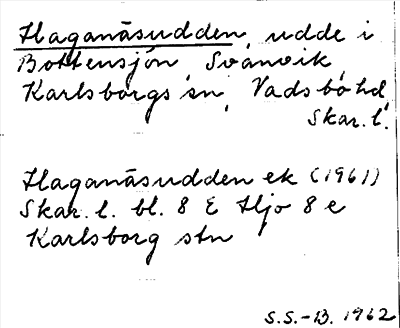 Haganäsudden, udde i
Bottensjön, Svanvik,
Karlsborgs sn, Vadsbo hd,
Skar. l.
Haganäsudden ek (1961)
Skar. l. bl. 8 E Hjo 8 e
Karlsborg stn
S.S.-B. 1962